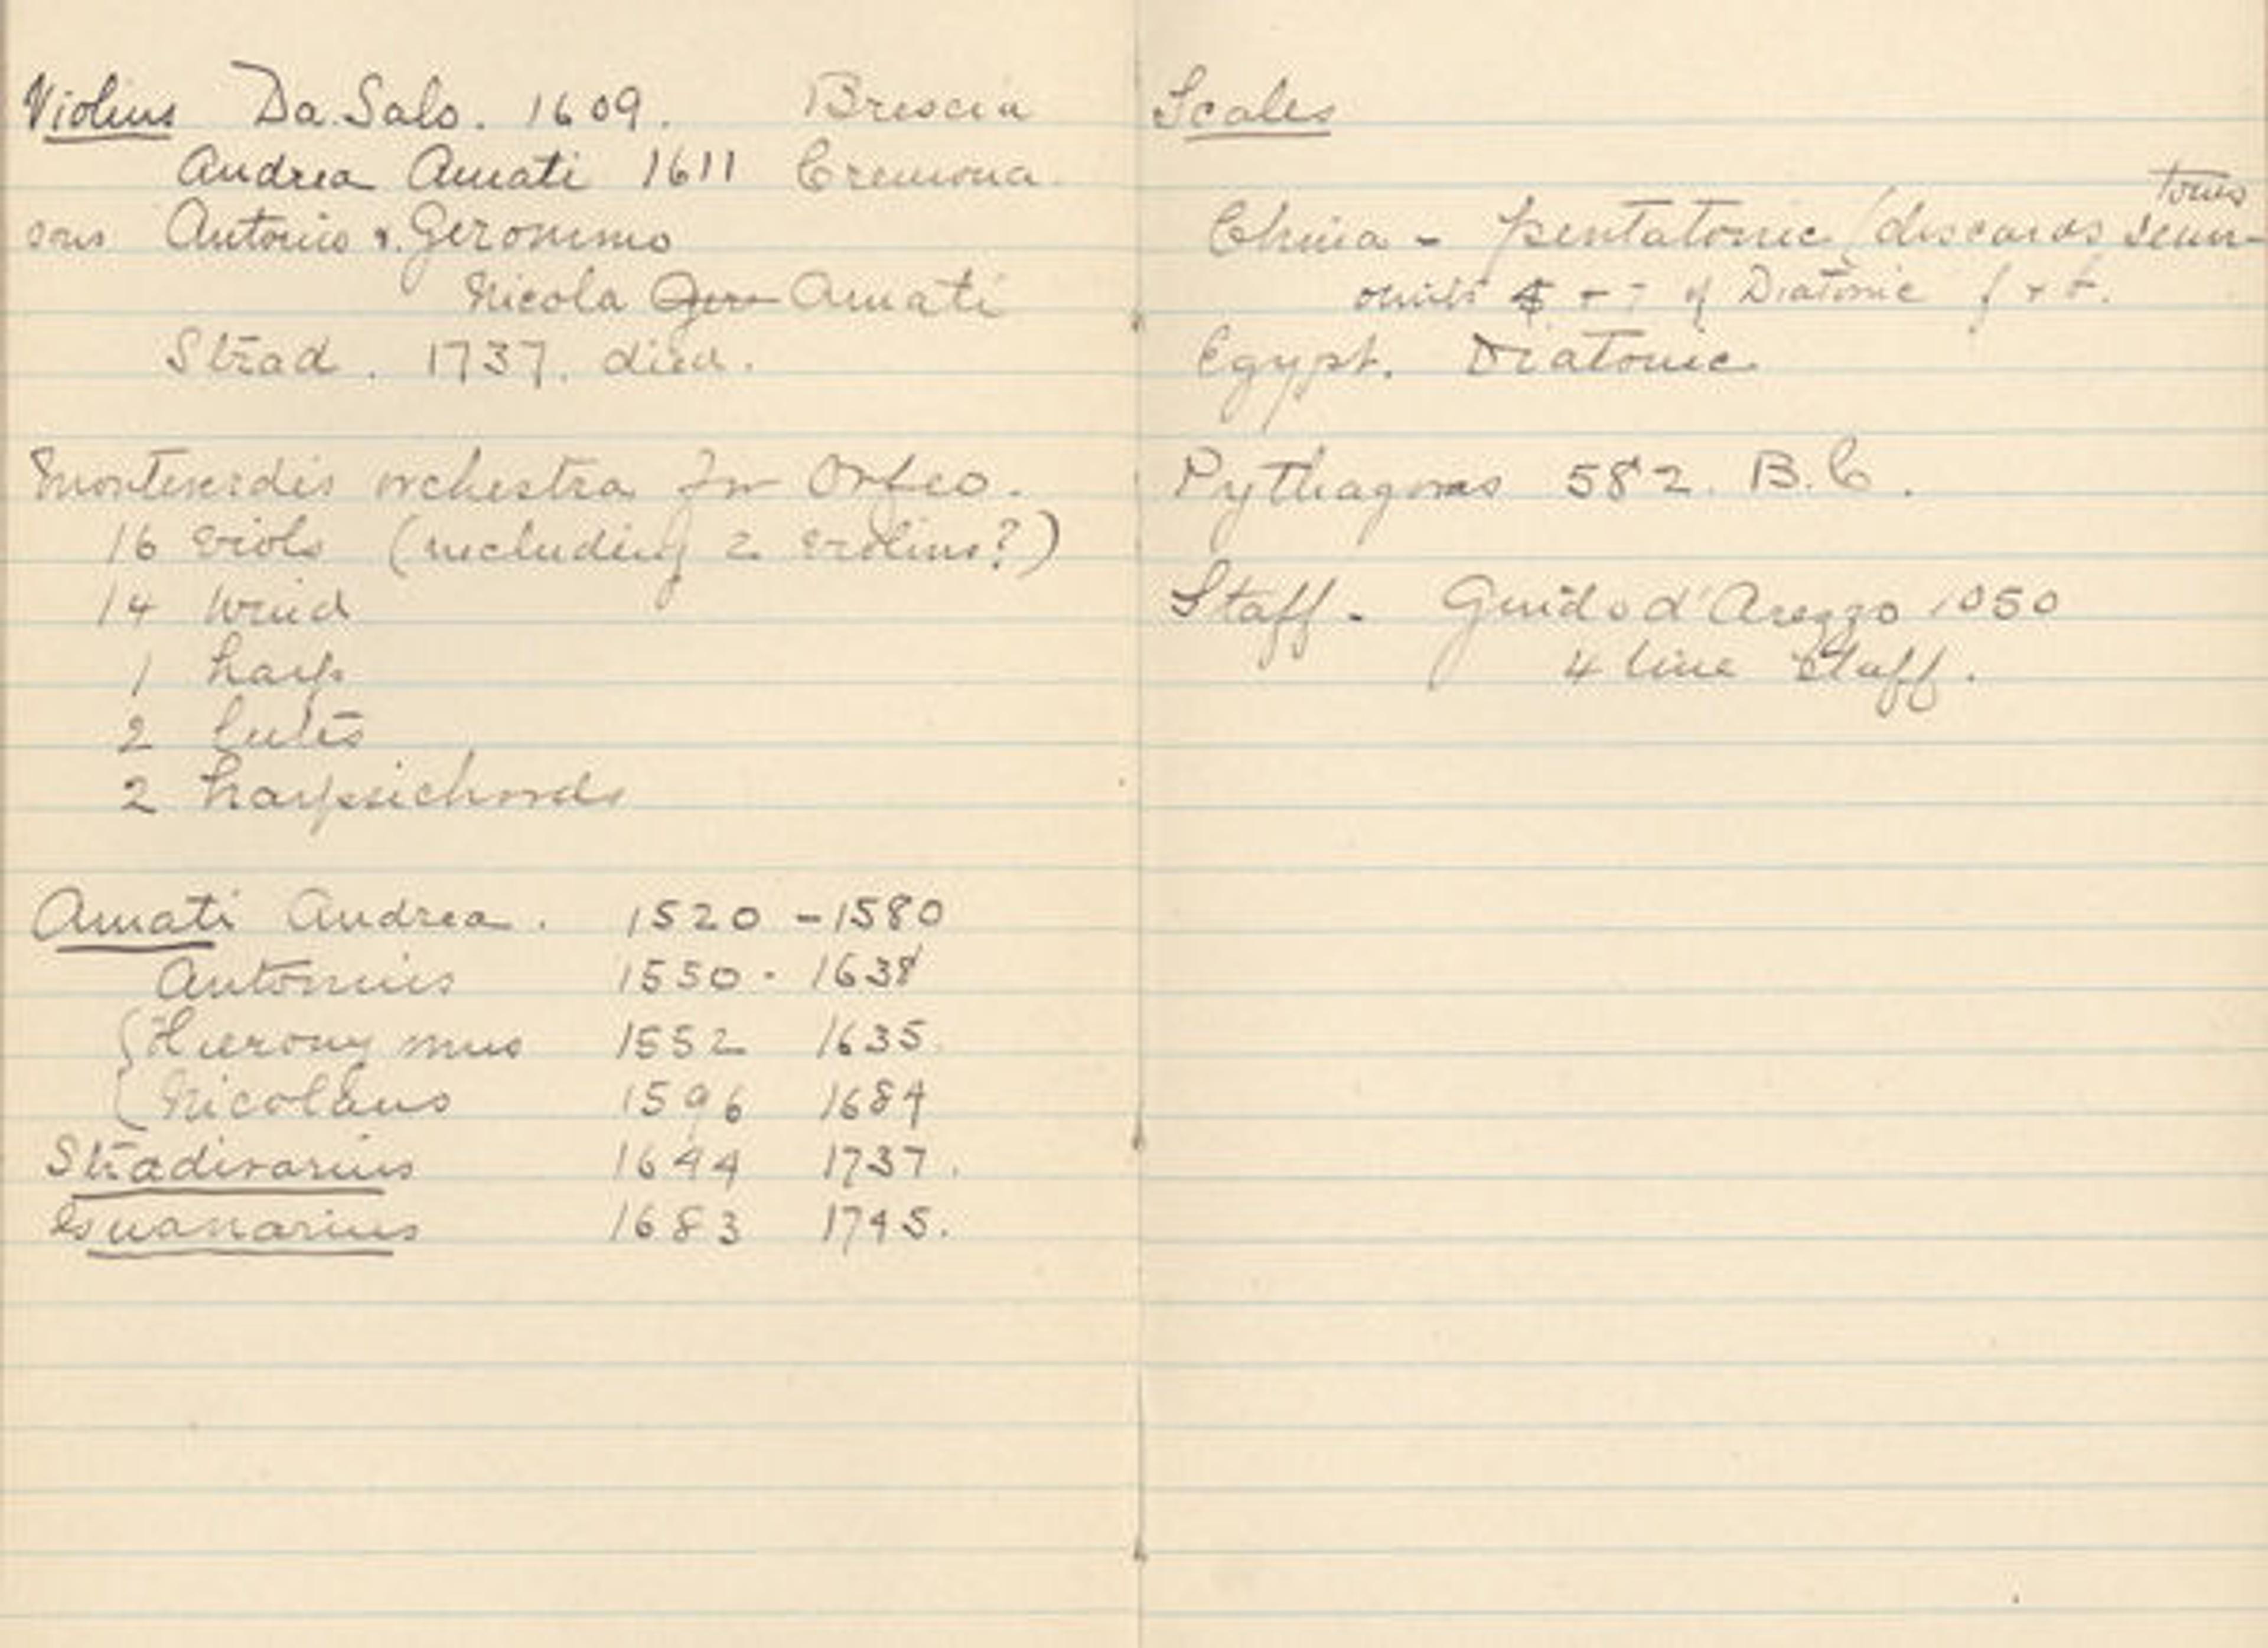 Violins Da Salo. 1609. Brescia
Andrea Amati 1611 Cremona.
sons Antonio & Geronimo
Nicola Amati
Strad. 1737. died.
Monteverdis orchestra for Orfeo.
16 viols (including 2 violins?)
14 wind
1 harp
2 lutes
2 harpsichords
Amati Andrea. 1520 - 1580
Antonius 1550 - 1638
Hieronymus 1552 1635
Nicolaus 1596 1684
Stradivarius 1644 1737.
1683 1745.
Scales
China - pentatonic (discards semi-tones
omits 4 + 7 of Diatonic f + b.
Egypt. Diatonic
Pythagoras 582. B.C.
Staff - Guido d'Arezzo 1050
4 line staff.